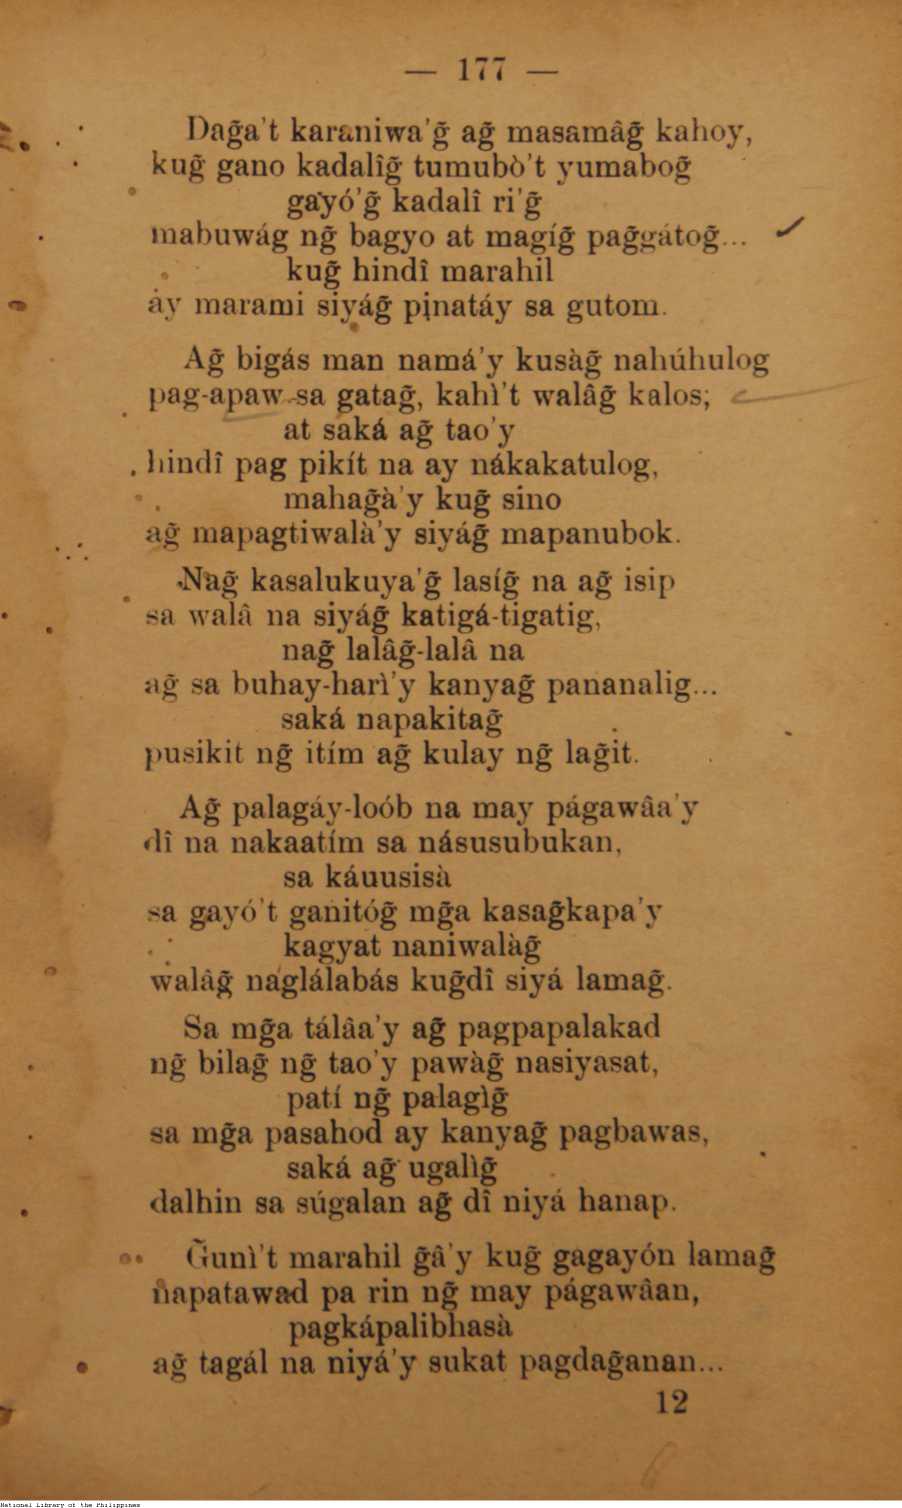 — 177 —
Dag̃a't karaniwa'g̃ ag̃ masamâg̃ kahoy,
kug̃ gano kadalîg̃ tumubò't yumabog̃
gayó'g̃ kadalî ri'g̃
mabuwág ng̃ bagyo at magíg̃ pag̃gátog̃...
kug̃ hindî marahil
áy marami siyág̃ pinatáy sa gutom.
Ag̃ bigás man namá'y kusàg̃ nahúhulog
pag-apaw sa gatag̃, kahì't walâg̃ kalos;
at saká ag̃ tao'y
hindî pag pikít na ay nákakatulog,
mahag̃à'y kug̃ sino
ag̃ mapagtiwalà'y siyág̃ mapanubok.
Nag̃ kasalukuya'g̃ lasíg̃ na ag̃ isip
sa walâ na siyág̃ katigá-tigatig,
nag̃ lalâg̃-lalâ na
ag̃ sa buhay-harì'y kanyag̃ pananalig...
saká napakitag̃
pusikit ng̃ itím ag̃ kulay ng̃ lag̃it.
Ag̃ palagáy-loób na may págawâa'y
dî na nakaatím sa násusubukan,
sa káuusisà
sa gayó't ganitóg̃ mg̃a kasag̃kapa'y
kagyat naniwalàg̃
walâg̃ naglálabás kug̃dî siyá lamag̃.
Sa mg̃a tálâa'y ag̃ pagpapalakad
ng̃ bilag̃ ng̃ tao'y pawàg̃ nasiyasat,
patí ng̃ palagìg̃
sa mg̃a pasahod ay kanyag̃ pagbawas,
saká ag̃ ugalìg̃
dalhin sa súgalan ag̃ dî niyá hanap.
G̃unì't marahil g̃â'y kug̃ gagayón lamag̃
napatawad pa rin ng̃ may págawâan,
pagkápalibhasà
ag̃ tagál na niyá'y sukat pagdag̃anan...
12
National Library of the Philippines